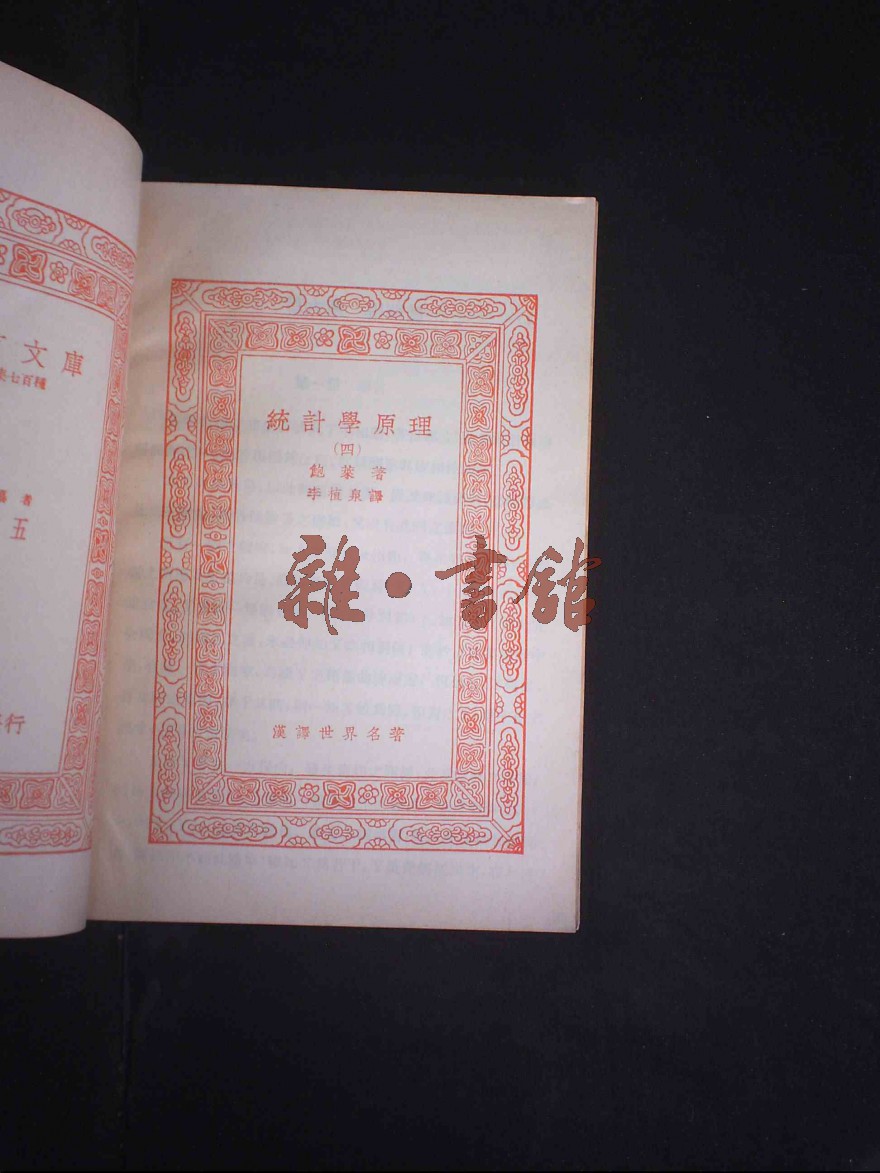 文庫
七百種
者
五
行
統計學原理
(四)
鮑萊著
李植泉譯
雜·書館
漢譯世界名著